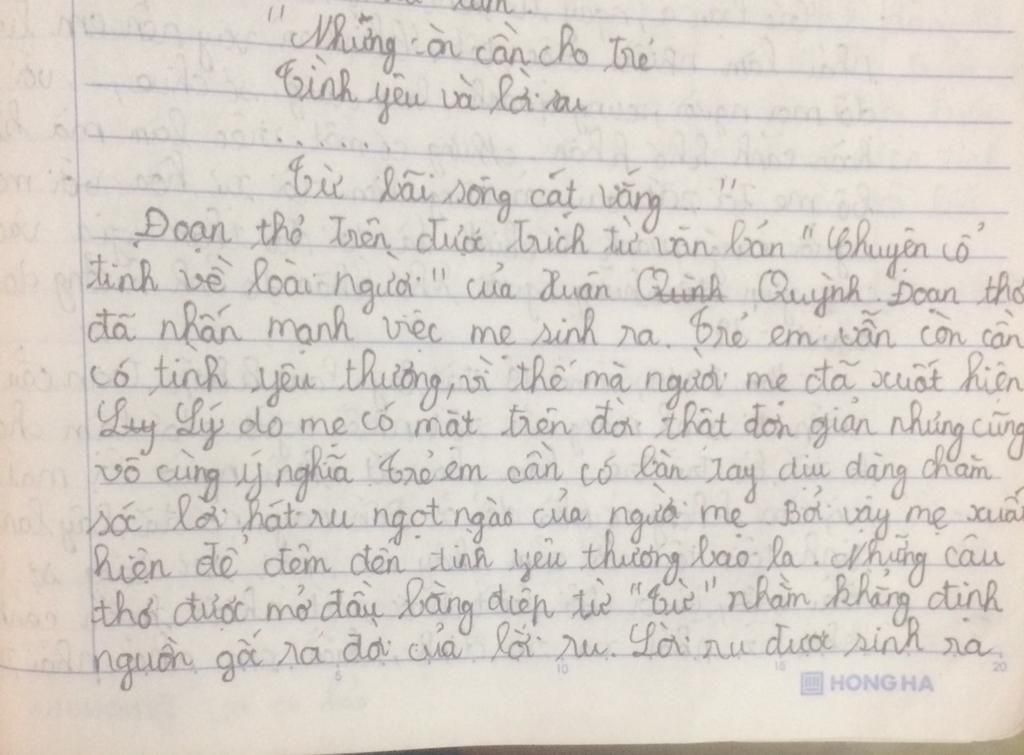 "Những còn cần cho trẻ
Tình yêu và lời ru
.......
Từ bãi sông cát vắng"
Đoạn thơ trên được trích từ văn bản "Chuyện cổ
tinh về loài người" của Xuân Quỳnh Quỳnh. Đoạn thơ
đã nhấn mạnh việc mẹ sinh ra. Trẻ em vẫn còn cần
có tình yêu thương, vì thế mà người mẹ đã xuất hiện
Luy Lý do mẹ có mặt trên đời thật đơn giản nhưng cũng
vô cùng ý nghĩa Trẻ em cần có bàn tay dịu dàng chăm
sóc lời hát ru ngọt ngào của người mẹ Bởi vậy mẹ xuất
hiện để đêm đến tình yêu thương bao la. Những câu
thơ được mở đầu bằng điệp từ "Từ" nhằm khẳng định
nguồn gố ra đời của lời ru. Lời ru được sinh ra
5 10 15 20
HONG HA